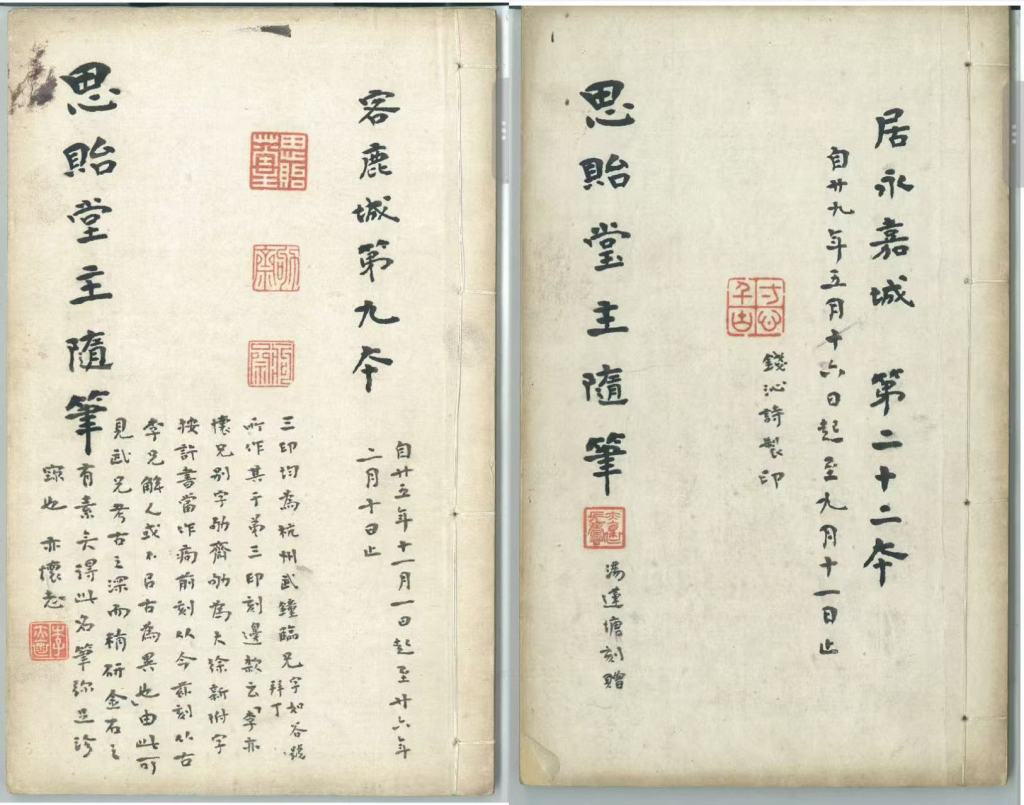 客鹿城第九本
自廿五年十一月一日起至廿六年
二月十日止
思貽堂
劬齋
三印均為杭州武鐘臨兄字如谷號
拜丁
所作其于第三印刻邊款云「李亦
懷兄別字劬齋劬為大徐新附字
按許書當作痀前刻从今茲刻从古
李兄解人或不㠯古為異也」由此可
見武兄考古之深而精研金石之
有素矣得此名筆弥足珍
寶也 亦懷志
思貽堂主隨筆
居永嘉城 第二十二本
自廿九年五月十六日起至九月十一日止
寸心千古
錢沁詩製印
思貽堂主隨筆
湯蓮塘刻贈